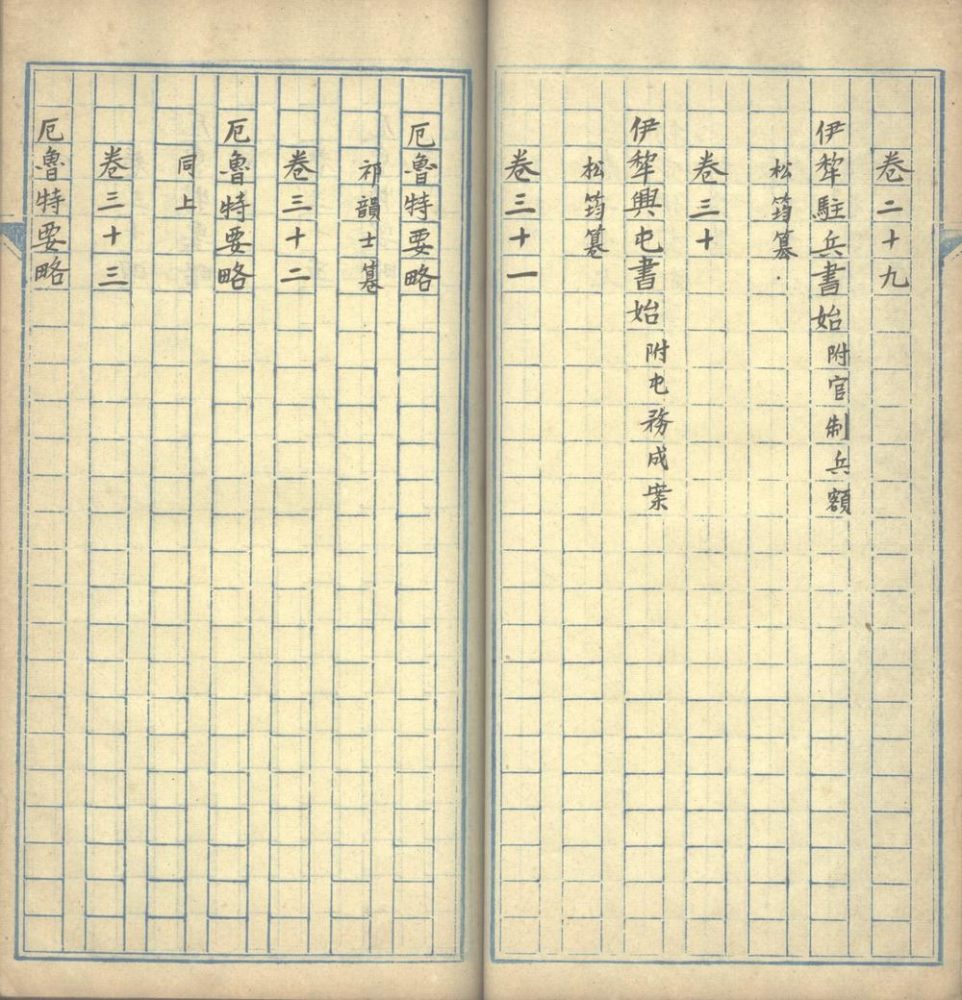 卷二十九
伊犂駐兵書始附官制兵額
松筠纂
卷三十
伊犂興屯書始附屯務成案
松筠纂
卷三十一
厄魯特要略
祁韻士纂
卷三十二
厄魯特要略
同上
卷三十三
厄魯特要略